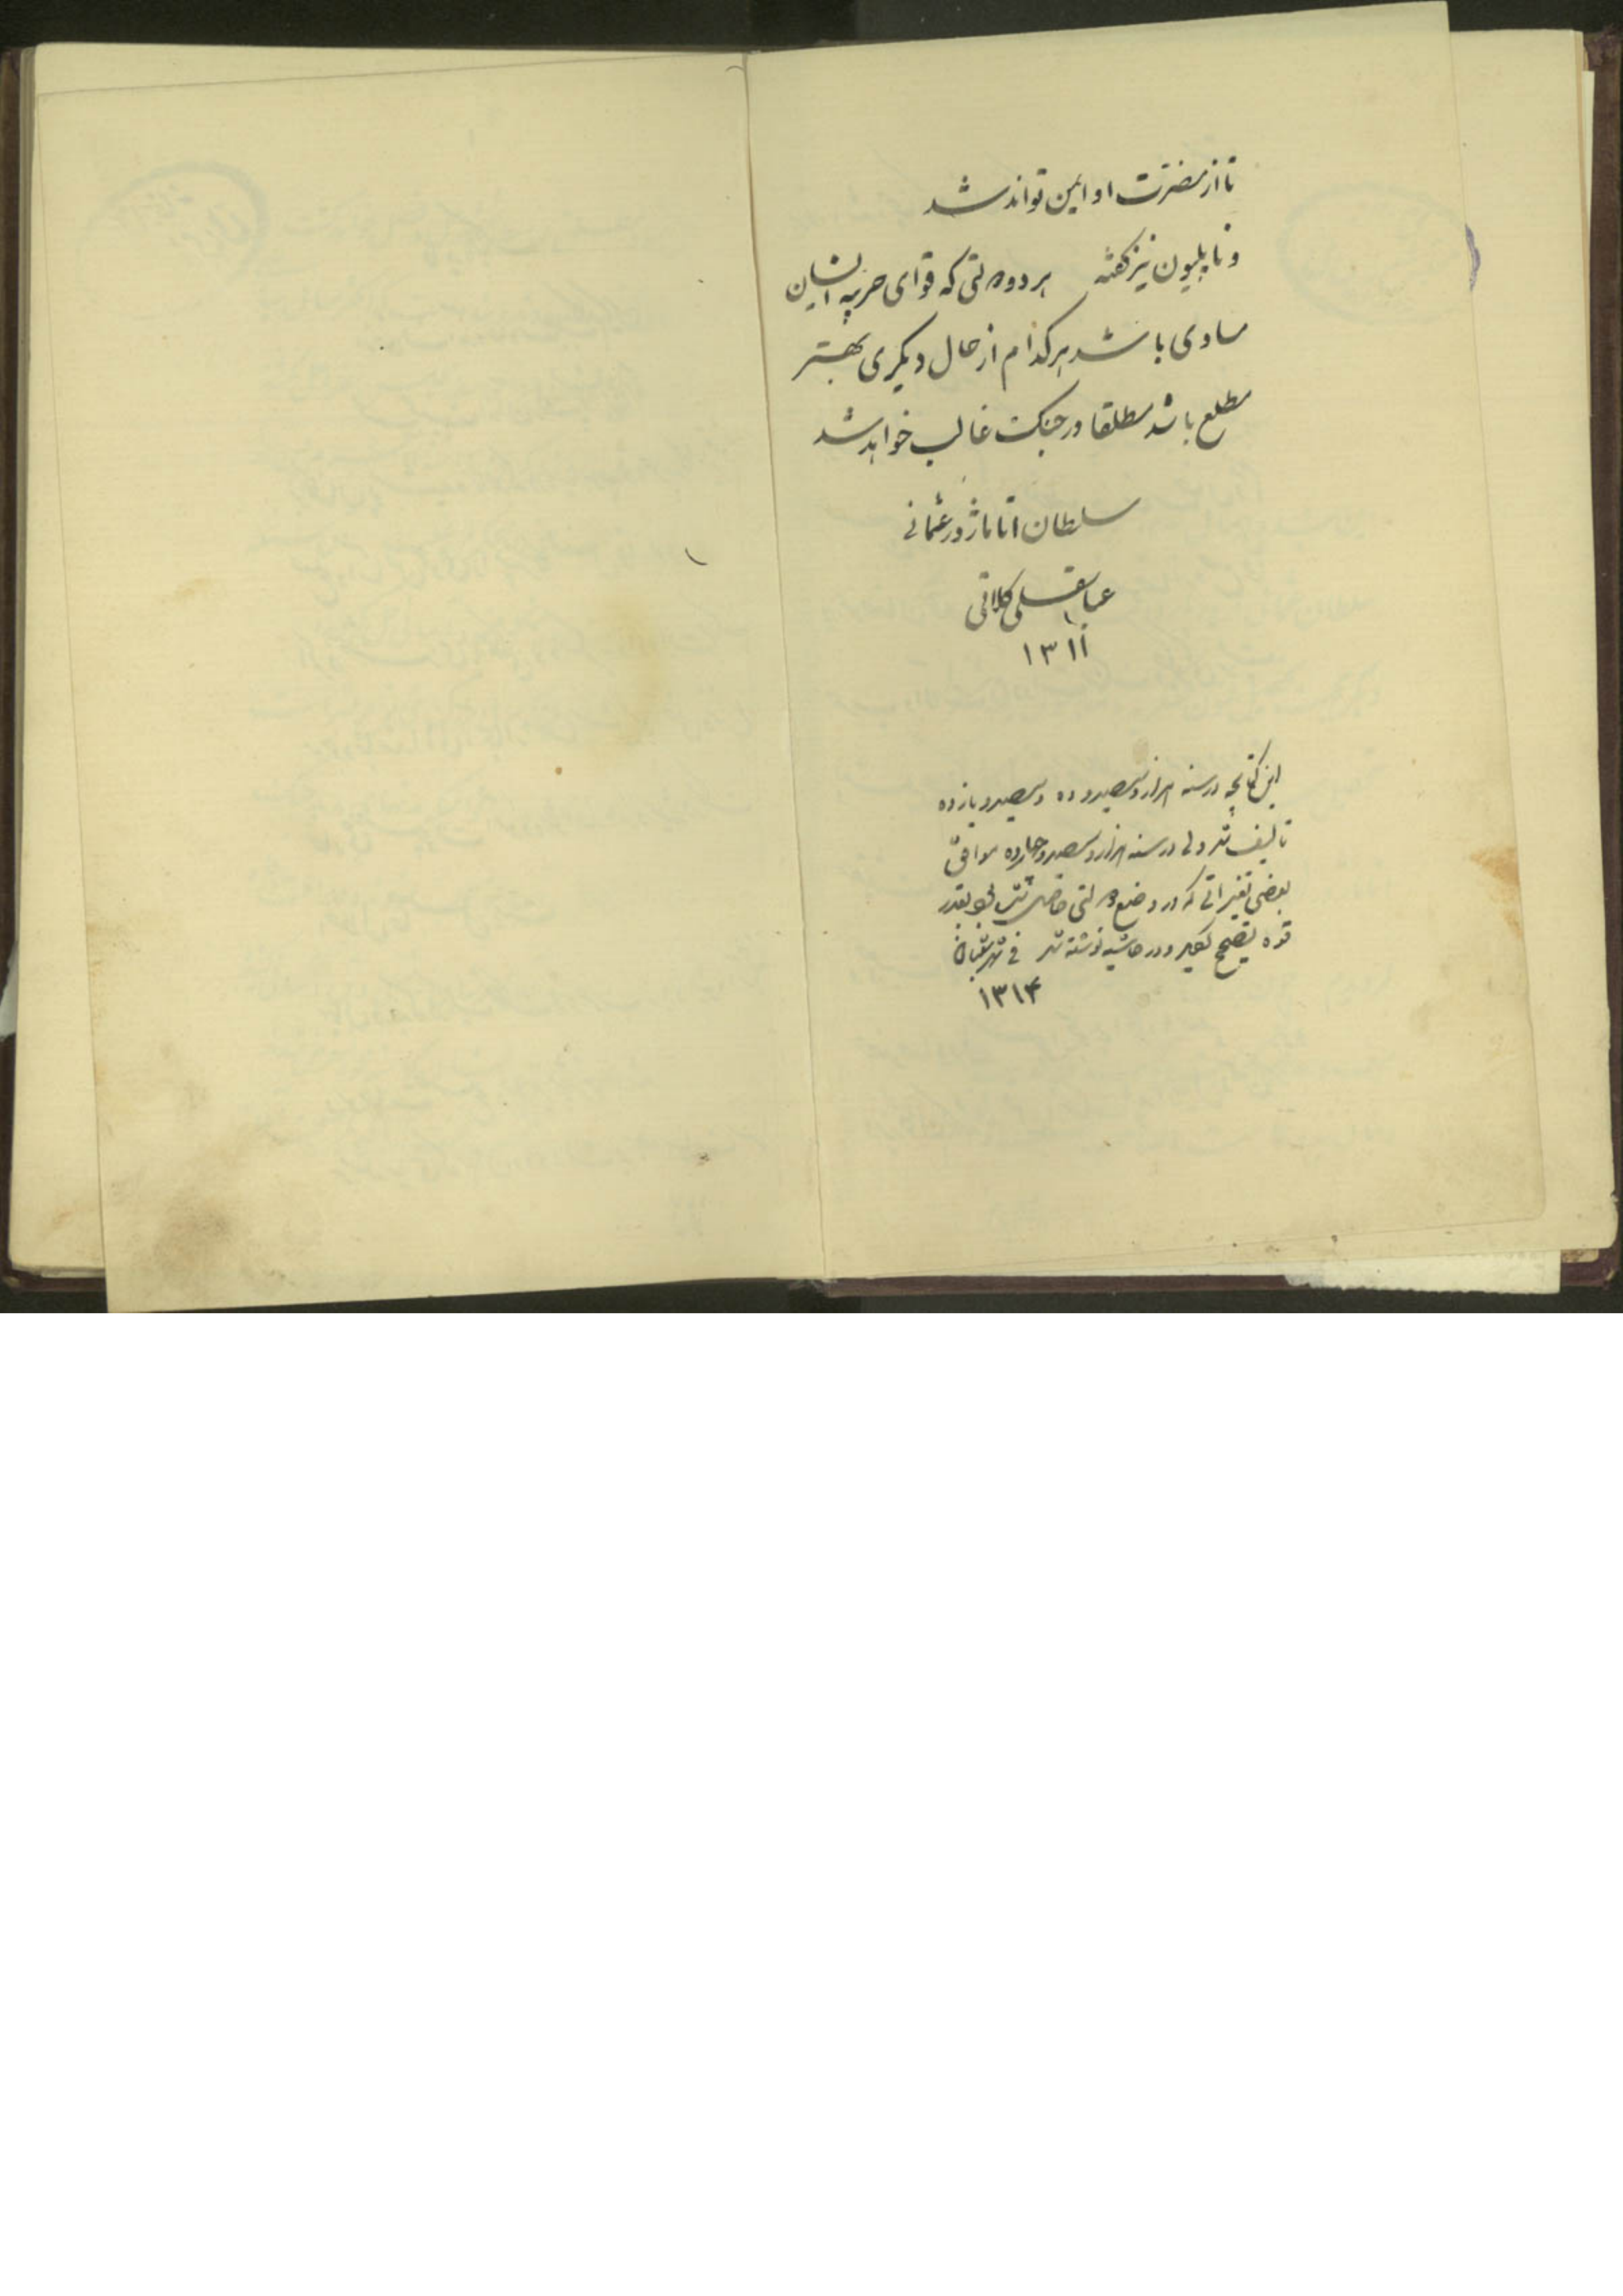 تا از مضرت او ایمن تواند شد
و ناپلیون نیز گفته هر دو دولتی که قوای حربیه ایشان
مساوی باشد هر کدام از حال دیگری بهتر
مطلع باشد مطلقا در جنگ غالب خواهد شد
سلطان اتاماژور عثمانی
عباسقلی کلاتی
۱۳۱۱
این کتابچه در سنه هزار و سیصد و ده و سیصد و یازده
تالیف شد ولی در سنه هزار و سیصد و چهارده موافق
بعضی تغییراتی که در وضع دولتی حاصل شده بود بقدر
قوه تصحیح گردید و در حاشیه نوشته شد فی شهر شعبان
۱۳۱۴